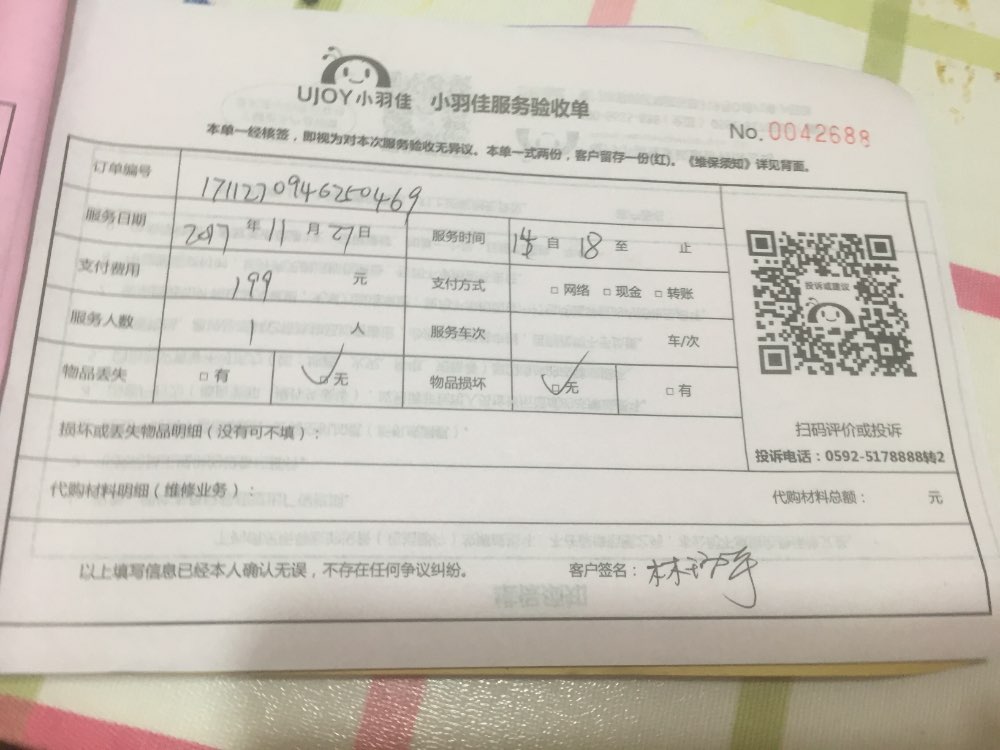 UJOY小羽佳 小羽佳服务验收单
No.0042688
本单一经核签，即视为对本次服务验收无异议。本单一式两份，客户留存一份(红)。《维保须知》详见背面。
订单编号 1711270946250469
服务日期 2017年11月27日 服务时间 自18至 止
支付费用 199 元 支付方式 □网络 □现金 □转账
服务人数 1 人 服务车次 车/次
物品丢失 □有 □无 物品损坏 □无 □有
投诉或建议
扫码评价或投诉
投诉电话：0592-5178888转2
损坏或丢失物品明细（没有可不填）：
代购材料明细（维修业务）： 代购材料总额： 元
以上填写信息已经本人确认无误，不存在任何争议纠纷。 客户签名：林